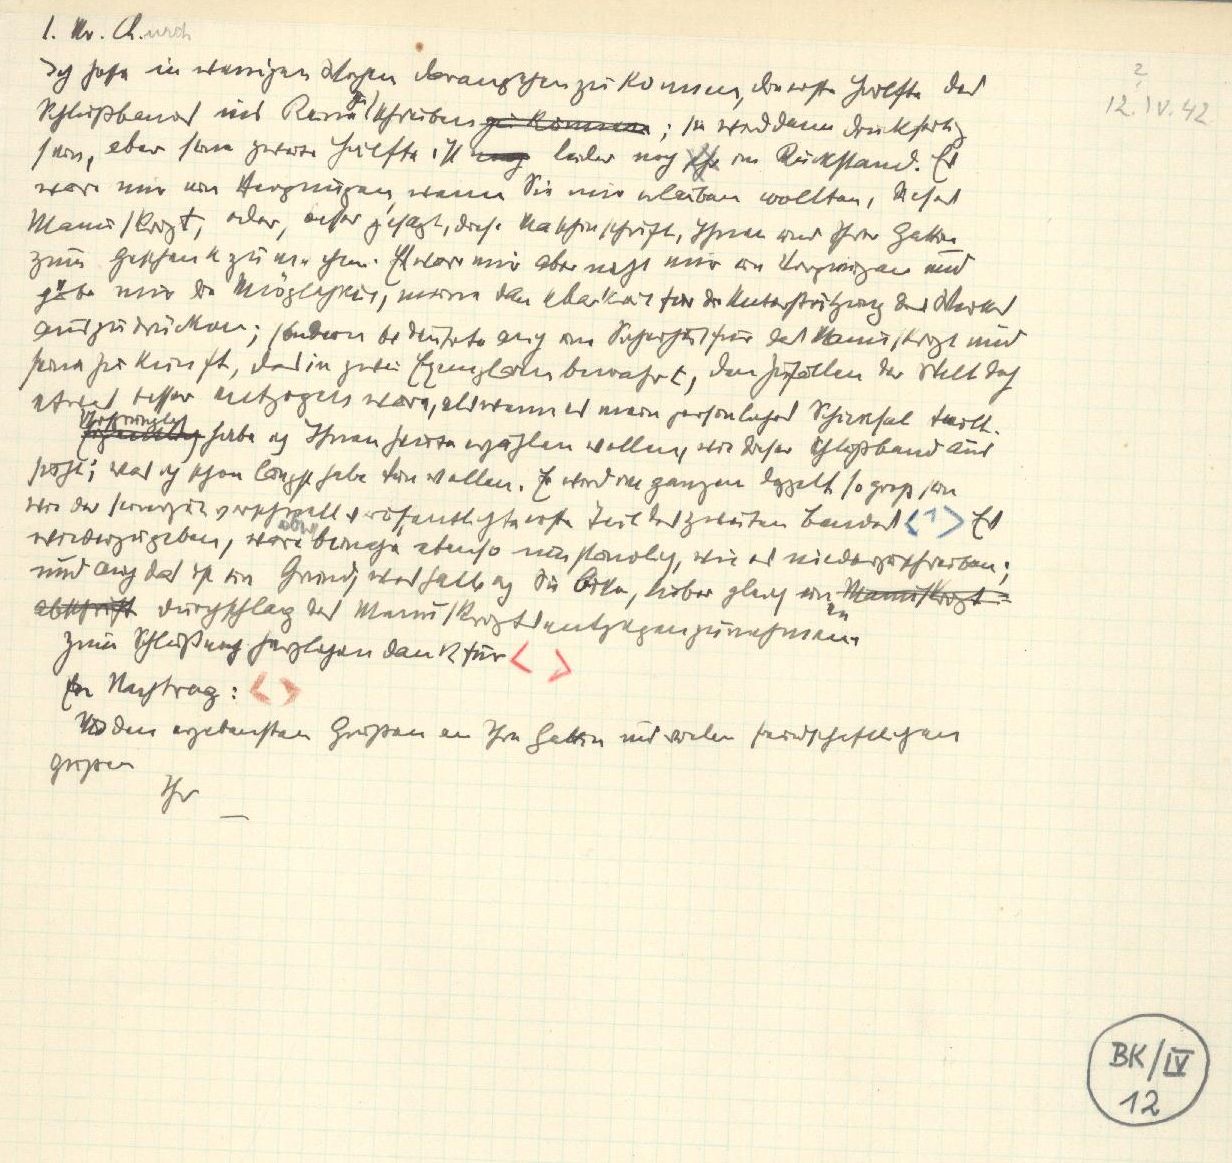 l. Mr. Church
? 12. IV. 42
Ich hoffe in wenigen Wochen darangehen zu können, die erste Hälfte des
Schlußbandes ins Reine zu schreiben zu können; sie wird dann druckfertig
sein, aber seine zweite Hälfte ist leider noch im Rückstand. Es
wäre mir ein Vergnügen, wenn Sie mir erlauben wollten, dieses
Manuskript, oder, besser gesagt, diese Maschinschrift, Ihnen und Ihrer Gattin
zum Geschenk zu machen. Es wäre mir aber nicht nur ein Vergnügen und
gäbe mir die Möglichkeit, meine Dankbarkeit für die Unterstützung des Werkes
auszudrücken; sondern bedeutete auch eine Sicherheit für das Manuskript und
seine Zukunft, das in zwei Exemplaren bewahrt, den Zufällen der Welt doch
etwas besser entzogen wäre, als wenn es mein persönliches Schicksal teilt.
Ursprünglich habe ich Ihnen heute erzählen wollen, wie dieser Schlußband aus
sieht; was ich schon längst habe tun wollen. Er wird im ganzen doppelt so groß sein
wie der seinerzeit verfrüht veröffentlichte erste Teil des zweiten Bandes < 1 > Es
wiederzugeben, wäre aber beinahe ebenso umständlich, wie es niederzuschreiben;
und auch das ist ein Grund, weshalb ich Sie bitte, lieber gleich einen Manuskript-
abschrift Durchschlag des Manuskripts entgegenzunehmen.
Zum Schluß noch herzlichen Dank für < >
Ein Nachtrag: < >
Mit den ergebensten Grüßen an Ihre Gattin und vielen freundschaftlichen
Grüßen
Ihr
BK/IV
12